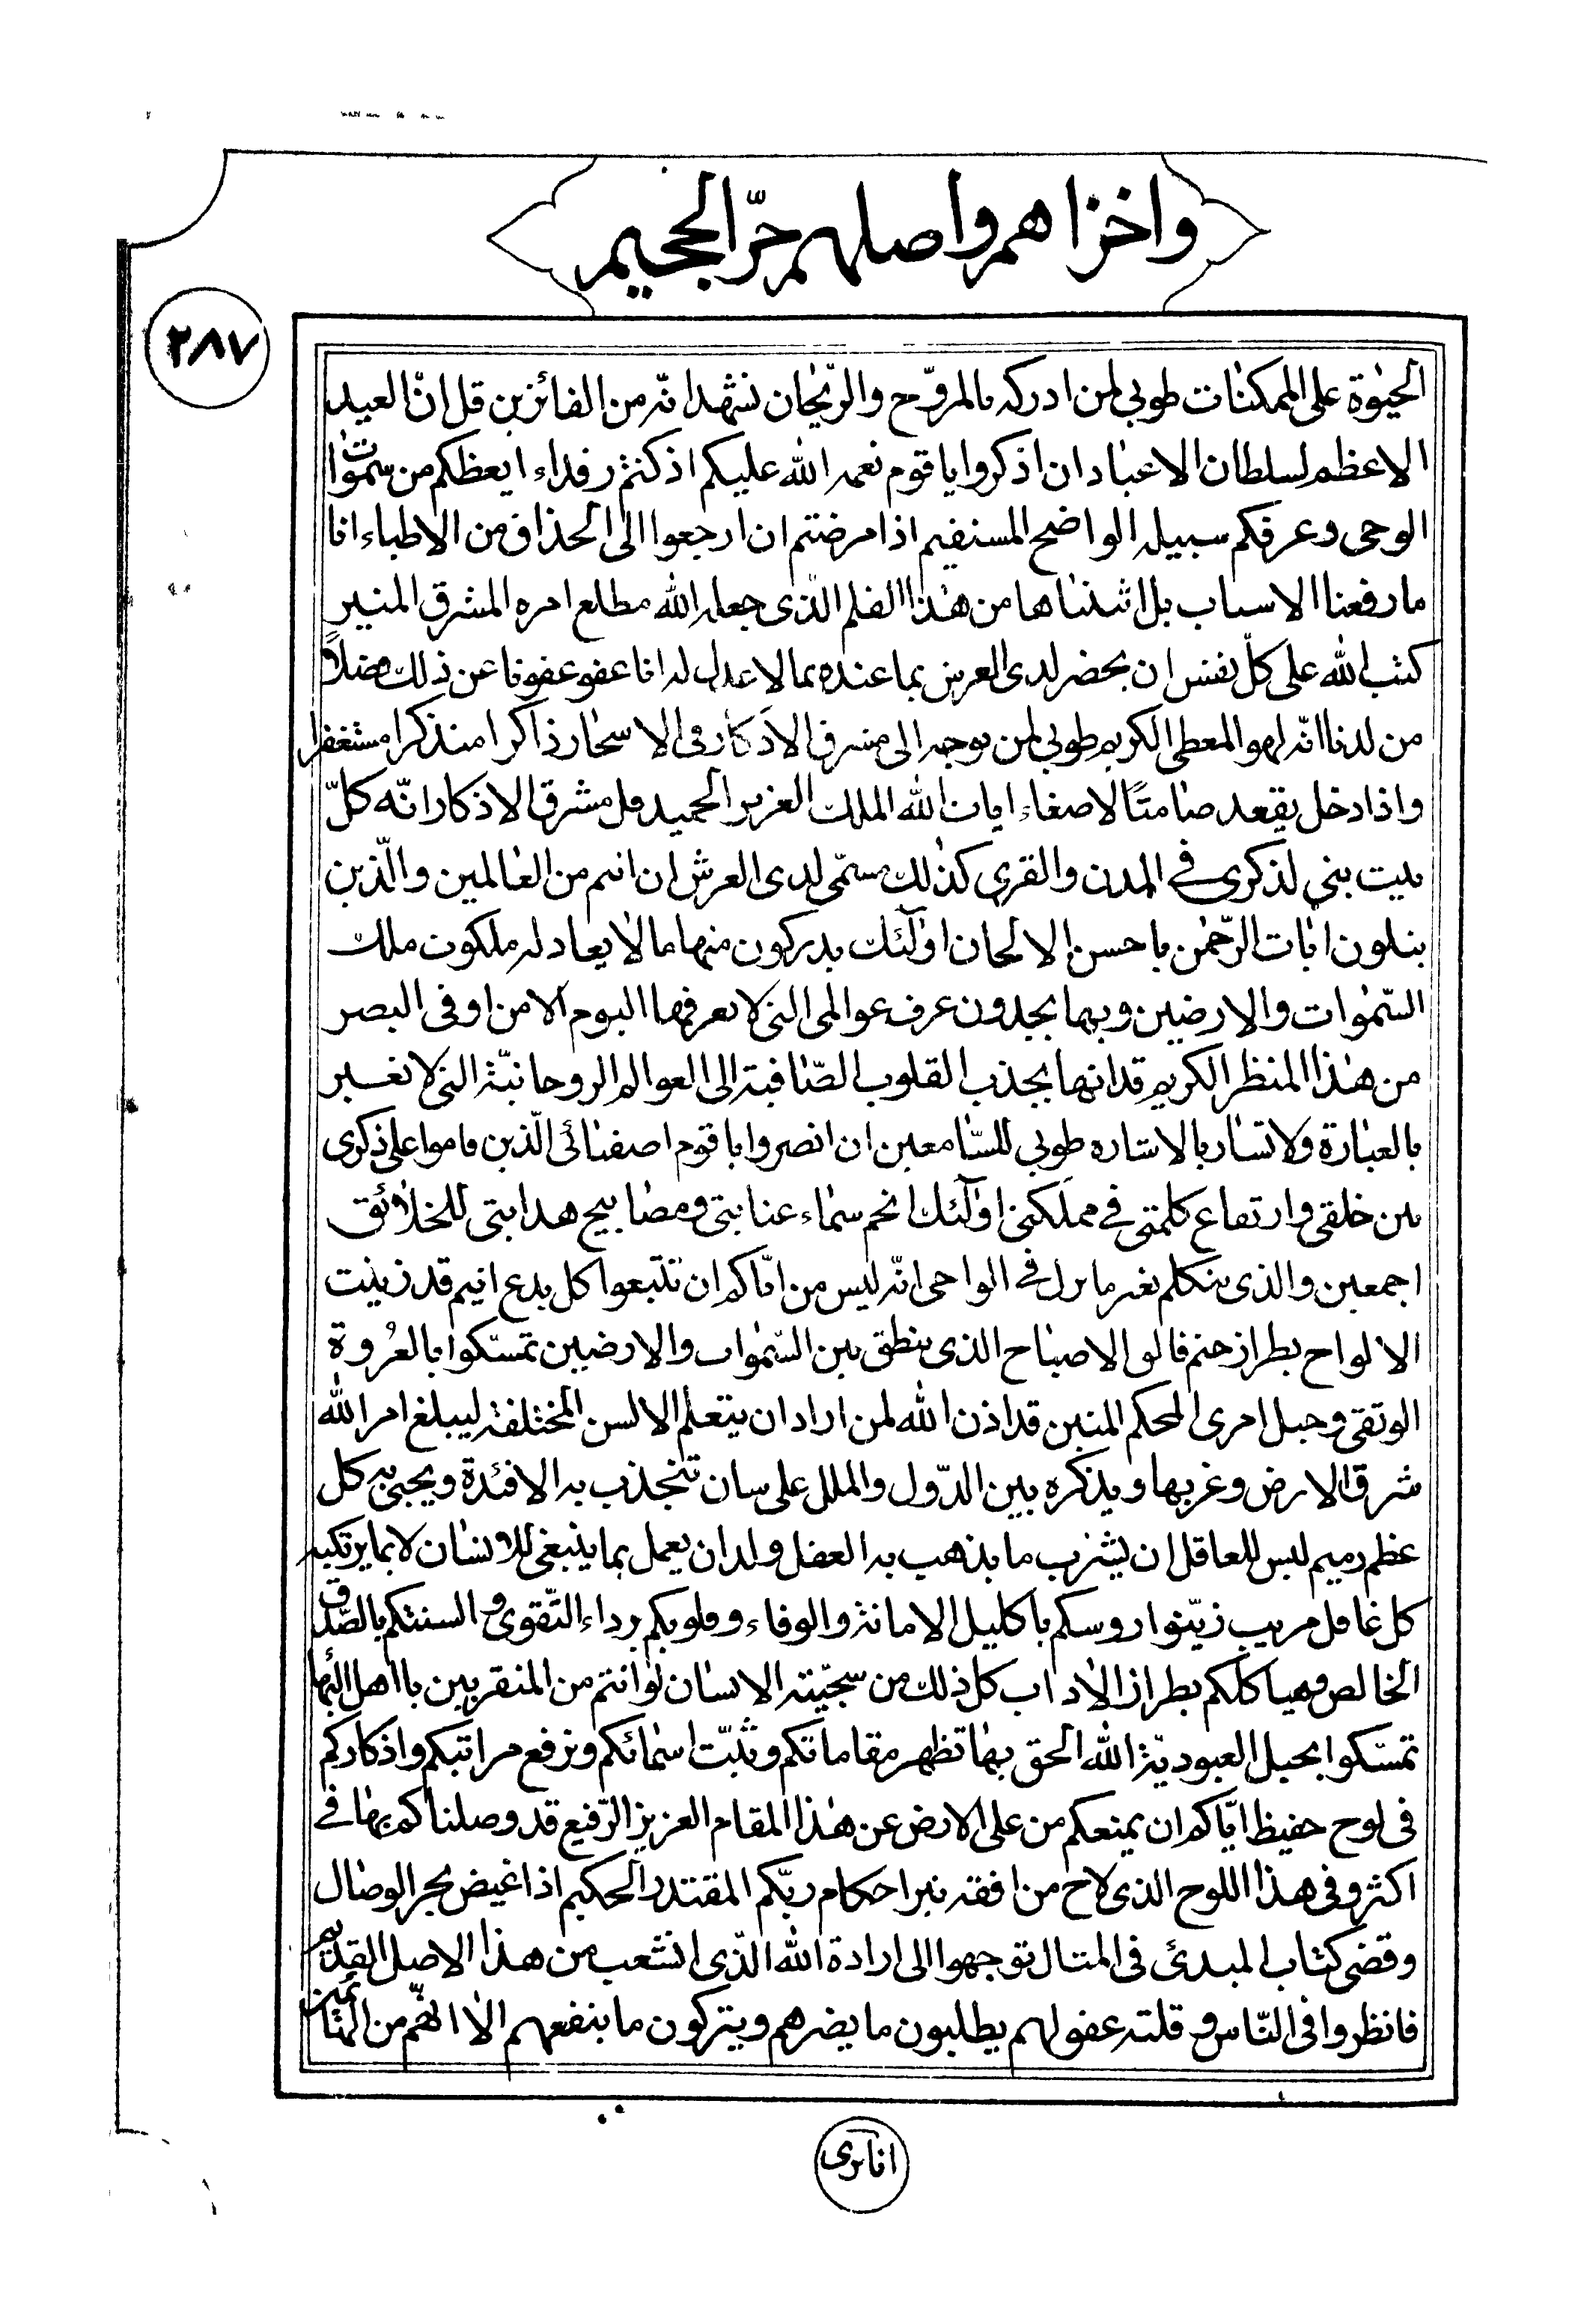 واخزاهم واصلهم حرّ الجحيم
٢٨٧
الحيٰوة على الممكنات طوبى لمن ادركه بالروح والرّيحان نشهد انّه من الفائزين قل انّ العيد
الاعظم لسلطان الاعياد ان اذكروا يا قوم نعمة الله عليكم اذ كنتم رقداء ايقظكم من نسمات
الوحى وعرفكم سبيله الواضح المستقيم اذا مرضتم ان ارجعوا الى الحذاق من الاطباء انا
ما رفعنا الاسباب بل اثبتناها من هٰذا القلم الّذى جعله الله مطلع امره المشرق المنير
كتب الله على كلّ نفس ان يحضر لدى العرش بما عنده مما لا عدل له انا عفونا عن ذلك فضلاً
من لدنا انّه لهو المعطى الكريم طوبى لمن توجه الى مشرق الاذكار فى الاسحار ذاكرا متذكرا مستغفرا
واذا دخل يقعد صامتًا لاصغاء ايات الله الملك العزيز الحميد قل مشرق الاذكار انّه كلّ
بيت بنى لذكرى فى المدن والقرى كذلك سمّى لدى العرش ان انتم من العالمين والّذين
يتلون ايات الرّحمٰن باحسن الالحان اولٰئك يدركون منها ما لا يعادله ملكوت ملك
السّمٰوات والارضين وبها يجدون عرف عوالمى التى لا يعرفها اليوم الا من اوفى البصر
من هٰذا المنظر الكريم قد انها يجذب القلوب الصّافية الى العوالم الروحانيّة التى لا تعبر
بالعبارة ولا تشار بالاشاره طوبى للسّامعين ان انصروا يا قوم اصفيائى الّذين قاموا على ذكرى
بين خلقى وارتفاع كلمتى فى مملكتى اولٰئك انجم سماء عنايتى ومصابيح هدايتى للخلائق
اجمعين والذى يتكلم بغير ما نزل فى الواحى انّه ليس من ايّاكم ان تتبعوا كل مدع اثيم قد زينت
الالواح بطراز ختم فالق الاصباح الذى ينطق بين السّمٰوات والارضين تمسّكوا بالعُروة
الوثقى وحبل امرى المحكم المتين قد اذن الله لمن اراد ان يتعلم الالسن المختلفة ليبلغ امر الله
شرق الارض وغربها ويذكره بين الدّول والملل على شان تنجذب به الافئدة ويحيى به كل
عظم رميم ليس للعاقل ان يشرب ما يذهب به العقل وله ان يعمل بما ينبغى للانسان لا بما يرتكبه
كل غافل مريب زيّنوا روسكم باكليل الامانة والوفاء وقلوبكم برداء التّقوى والسنتكم بالصّدق
الخالص وهياكلكم بطراز الاداب كل ذلك من سجيّته الانسان لو انتم من المتقربين يا اهل البهاء
تمسّكوا بحبل العبوديّة الله الحق بها تظهر مقاماتكم وتثبّت اسمائكم وترفع مراتبكم واذكاركم
فى لوح حفيظ ايّاكم ان يمنعكم من على الارض عن هٰذا المقام العزيز الرّفيع قد وصلناكم بها فى
اكثر وفى هذا اللوح الذى لاح من افقه نير احكام ربّكم المقتدر الحكيم اذا غيض بحر الوصال
وقضى كتاب المبدئ فى المآل توجهوا الى ارادة الله الّذى انشعب من هذا الاصل القديم
فانظروا فى النّاس وقلته عقولهم يطلبون ما يضرهم ويتركون ما ينفعهم الا انّهم من الهائمين
انا نرى